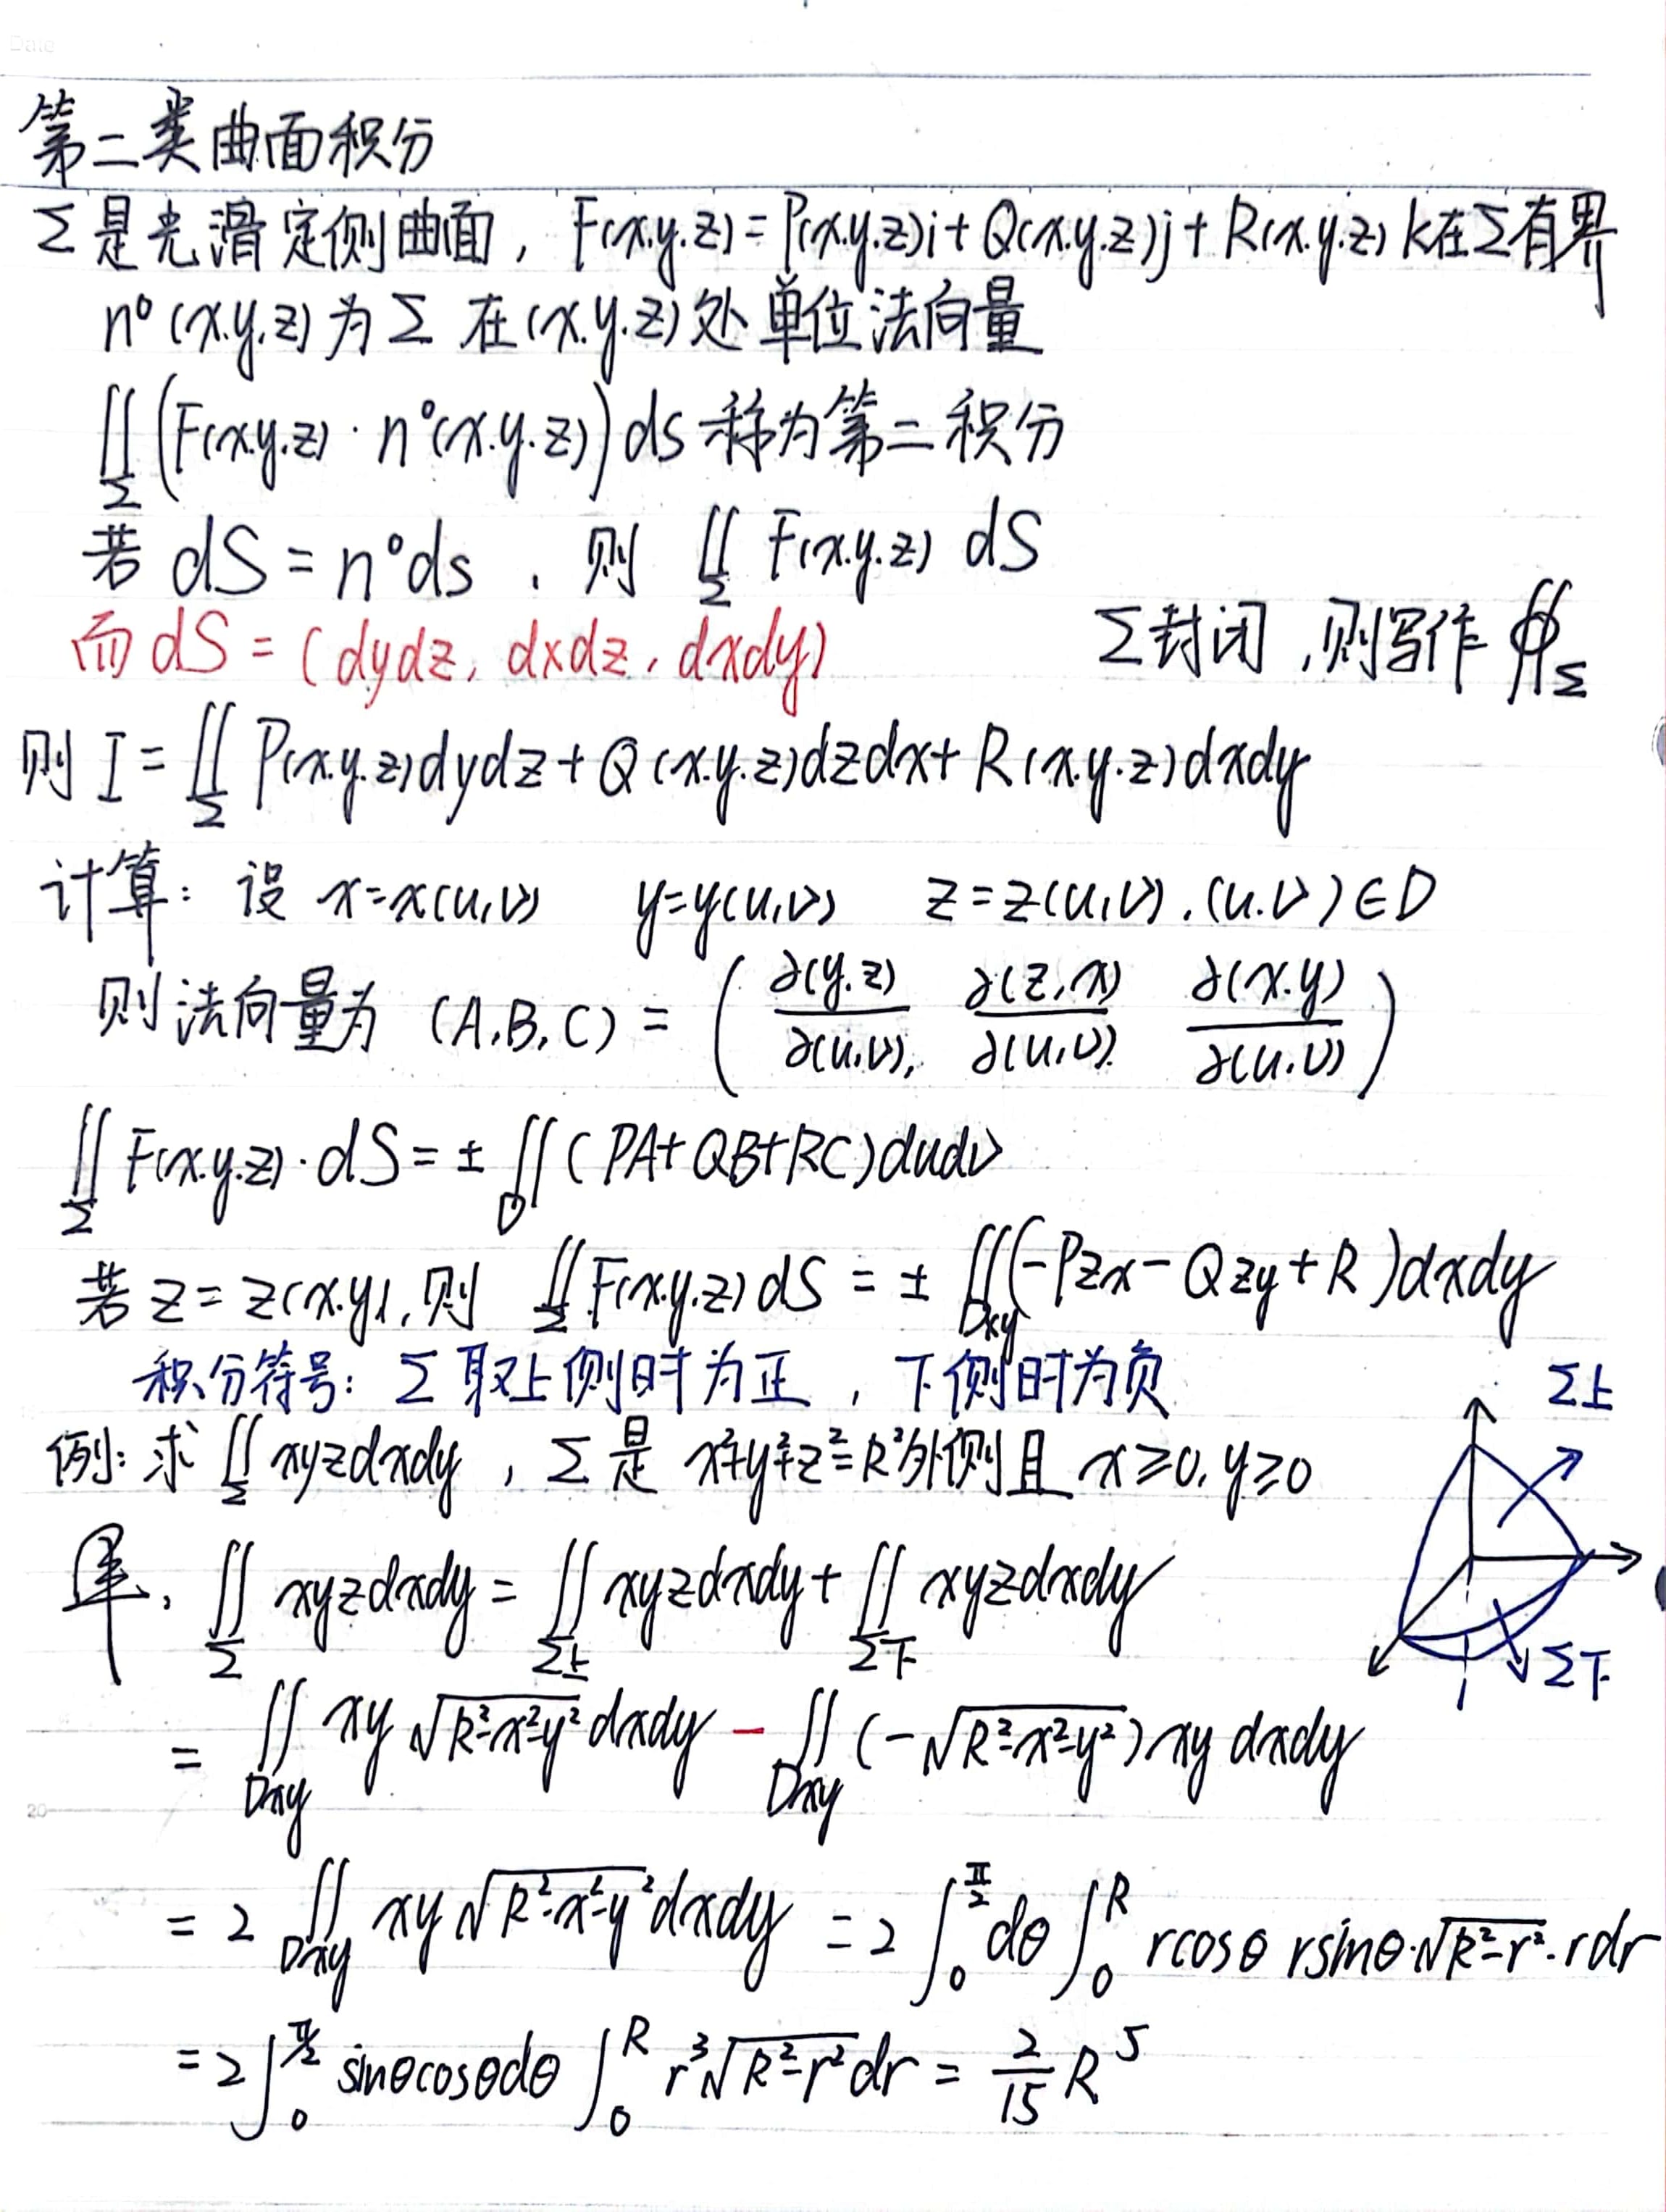 Date
第二类曲面积分
Σ是光滑定侧曲面, F(x.y.z)=P(x.y.z)i+Q(x.y.z)j+R(x.y.z)k在Σ有界
n⁰(x.y.z)为Σ在(x.y.z)处单位法向量
∬_Σ(F(x.y.z)·n⁰(x.y.z))ds 称为第二积分
若 dS=n⁰ds , 则 ∬_Σ F(x.y.z) dS
而dS=(dydz, dxdz, dxdy) Σ封闭,则写作∯_Σ
则 I=∬_Σ P(x.y.z)dydz+Q(x.y.z)dzdx+R(x.y.z)dxdy
计算: 设 x=x(u,v) y=y(u,v) z=z(u,v),(u.v)∈D
则法向量为 (A,B,C)=(∂(y.z)/∂(u.v), ∂(z,x)/∂(u,v), ∂(x.y)/∂(u.v))
∬_Σ F(x.y.z)·dS=±∬_D(PA+QB+RC)dudv
若z=z(x.y),则 ∬_Σ F(x.y.z)dS=±∬_Dxy(-Pzx-Qzy+R)dxdy
积分符号: Σ取上侧时为正, 下侧时为负
Σ上
例: 求∬_Σ xyzdxdy, Σ是x²+y²+z²=R²外侧且x≥0,y≥0
∬_Σ xyzdxdy=∬_Σ上 xyzdxdy+∬_Σ下 xyzdxdy
Σ下
=∬_Dxy xy√(R²-x²-y²)dxdy-∬_Dxy(-√(R²-x²-y²))xydxdy
20
=2∬_Dxy xy√(R²-x²-y²)dxdy=2∫_0^(π/2)dθ∫_0^R rcosθ rsinθ·√(R²-r²)·rdr
=2∫_0^(π/2)sinθcosθdθ∫_0^R r³√(R²-r²)dr=2/15 R⁵